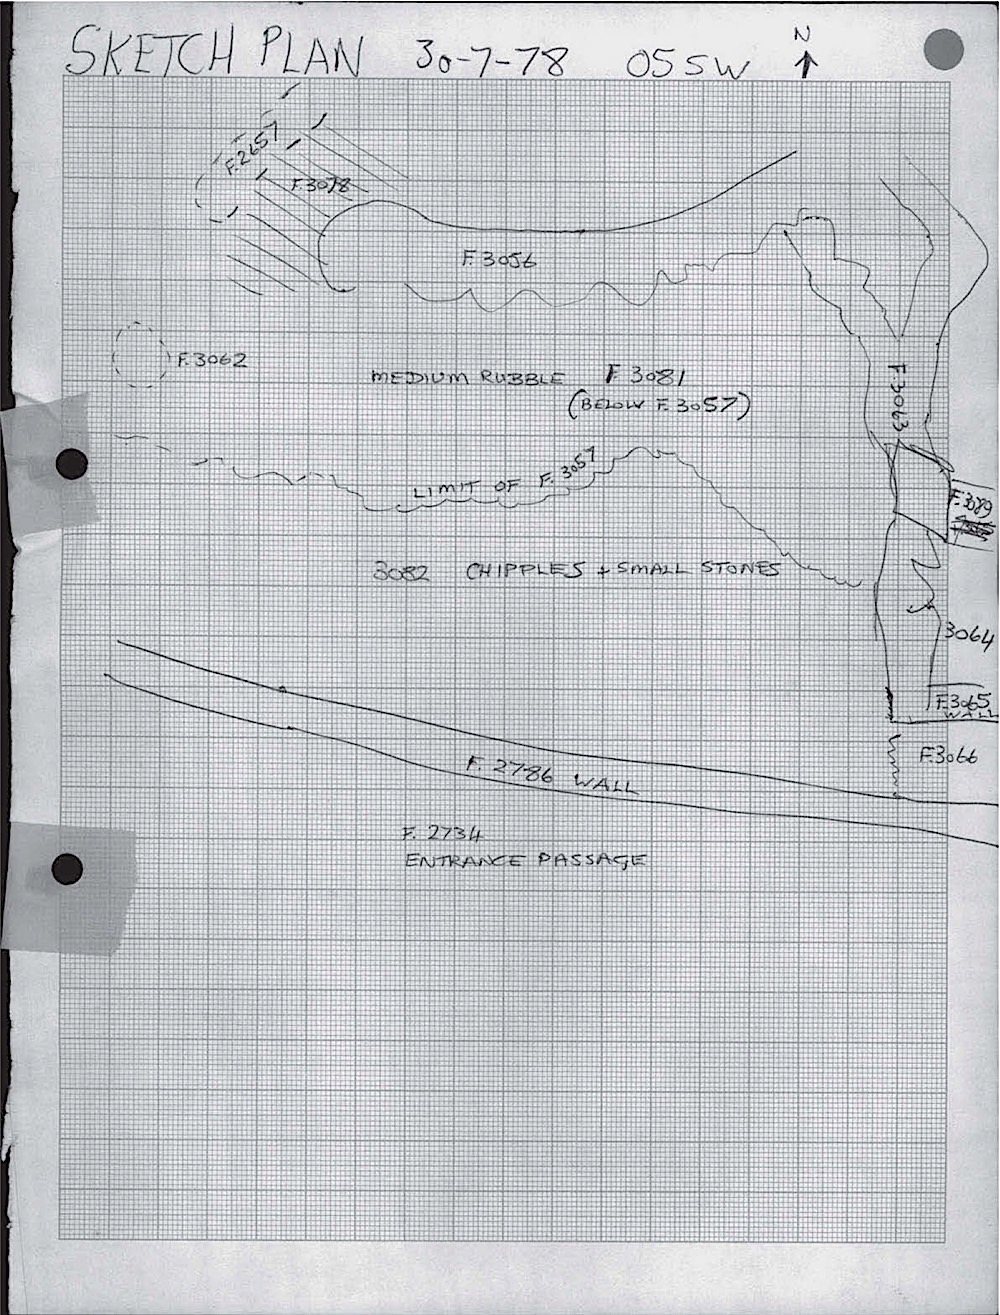 SKETCH PLAN 30-7-78 05SW N
F.2657
F.3078
F.3056
F.3062
MEDIUM RUBBLE F.3081
(BELOW F.3057)
F.3063
LIMIT OF F.3057
F.3089
3082 CHIPPLES + SMALL STONES
3064
F.3065
WALL
F.3066
F.2786 WALL
F.2734
ENTRANCE PASSAGE